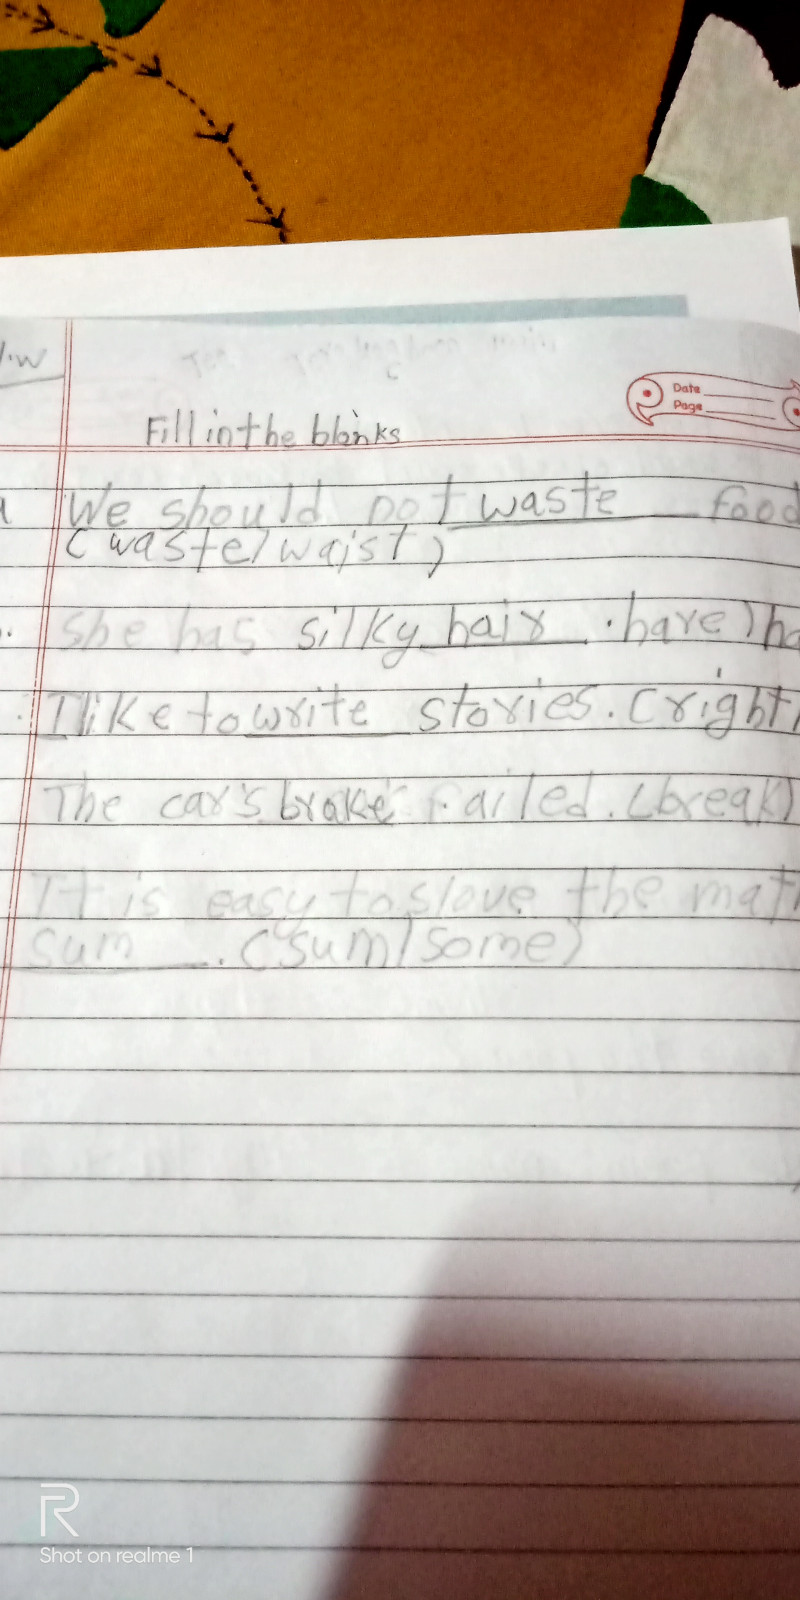 H.W
Date
Page
Fill in the blanks
a We should not waste food
(waste/waist)
She has silky hair . hare) ha
I like to write stories. (right/
The car's brake failed. (break)
It is easy to slove the mat
sum . (sum/some)
Shot on realme 1